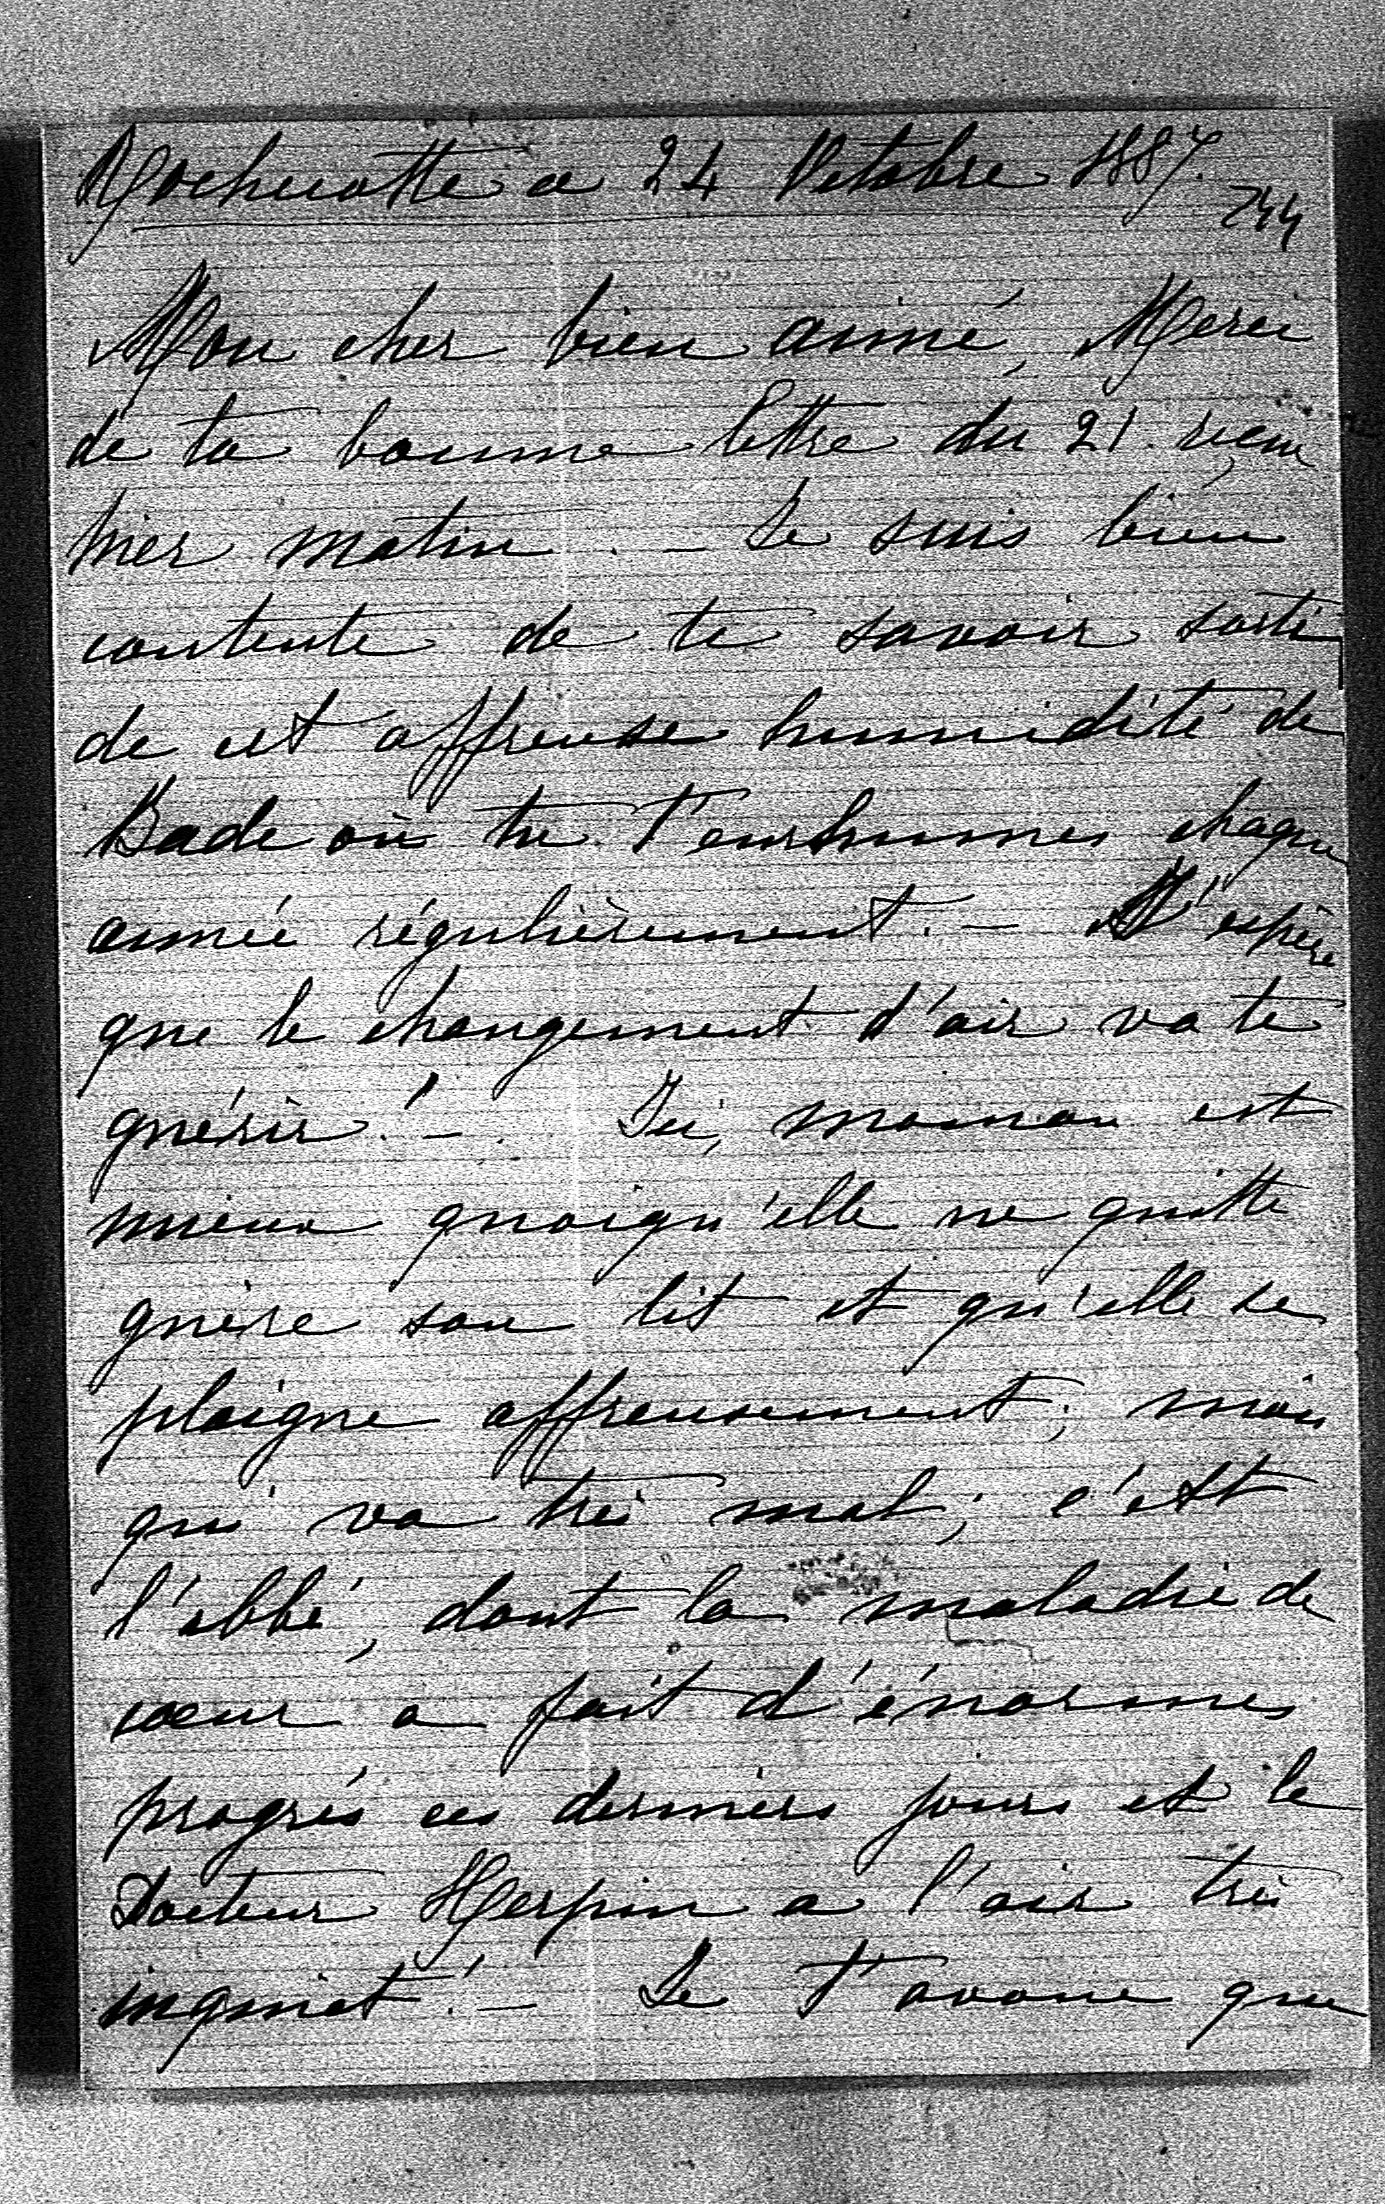 Rochecotte ce 24 Octobre 1887.
244
Mon cher bien aimé, Merci
de ta bonne lettre du 21. reçue
hier matin. – Je suis bien
contente de te savoir sorti
de cet affreuse humidité de
Bade où tu t'enrhumes chaque
année régulièrement. – J'espère
que le changement d'air va te
guérir! – Ici, maman est
mieux quoiqu'elle ne quitte
guère son lit et qu'elle se
plaigne affreusement; mais
qui va très mal; c'est
l'abbé, dont la maladie de
cœur a fait d'énormes
progrès ces derniers jours et le
Docteur Herpin a l'air très
inquiet! – Je t'avoue que